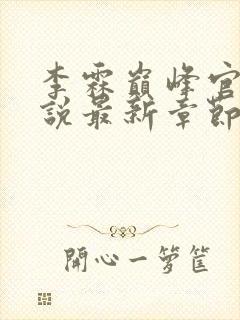 李霖巔峰官
說最新章節
開心一籮筐